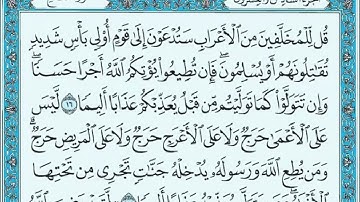 قُل لِّلْمُخَلَّفِينَ مِنَ ٱلْأَعْرَابِ سَتُدْعَوْنَ إِلَىٰ قَوْمٍ أُو۟لِى بَأْسٍ شَدِيدٍ
تُقَـٰتِلُونَهُمْ أَوْ يُسْلِمُونَ ۖ فَإِن تُطِيعُوا۟ يُؤْتِكُمُ ٱللَّهُ أَجْرًا حَسَنًا ۖ
وَإِن تَتَوَلَّوْا۟ كَمَا تَوَلَّيْتُم مِّن قَبْلُ يُعَذِّبْكُمْ عَذَابًا أَلِيمًا ١٦ لَّيْسَ
عَلَى ٱلْأَعْمَىٰ حَرَجٌ وَلَا عَلَى ٱلْأَعْرَجِ حَرَجٌ وَلَا عَلَى ٱلْمَرِيضِ حَرَجٌ ۗ
وَمَن يُطِعِ ٱللَّهَ وَرَسُولَهُۥ يُدْخِلْهُ جَنَّـٰتٍ تَجْرِى مِن تَحْتِهَا